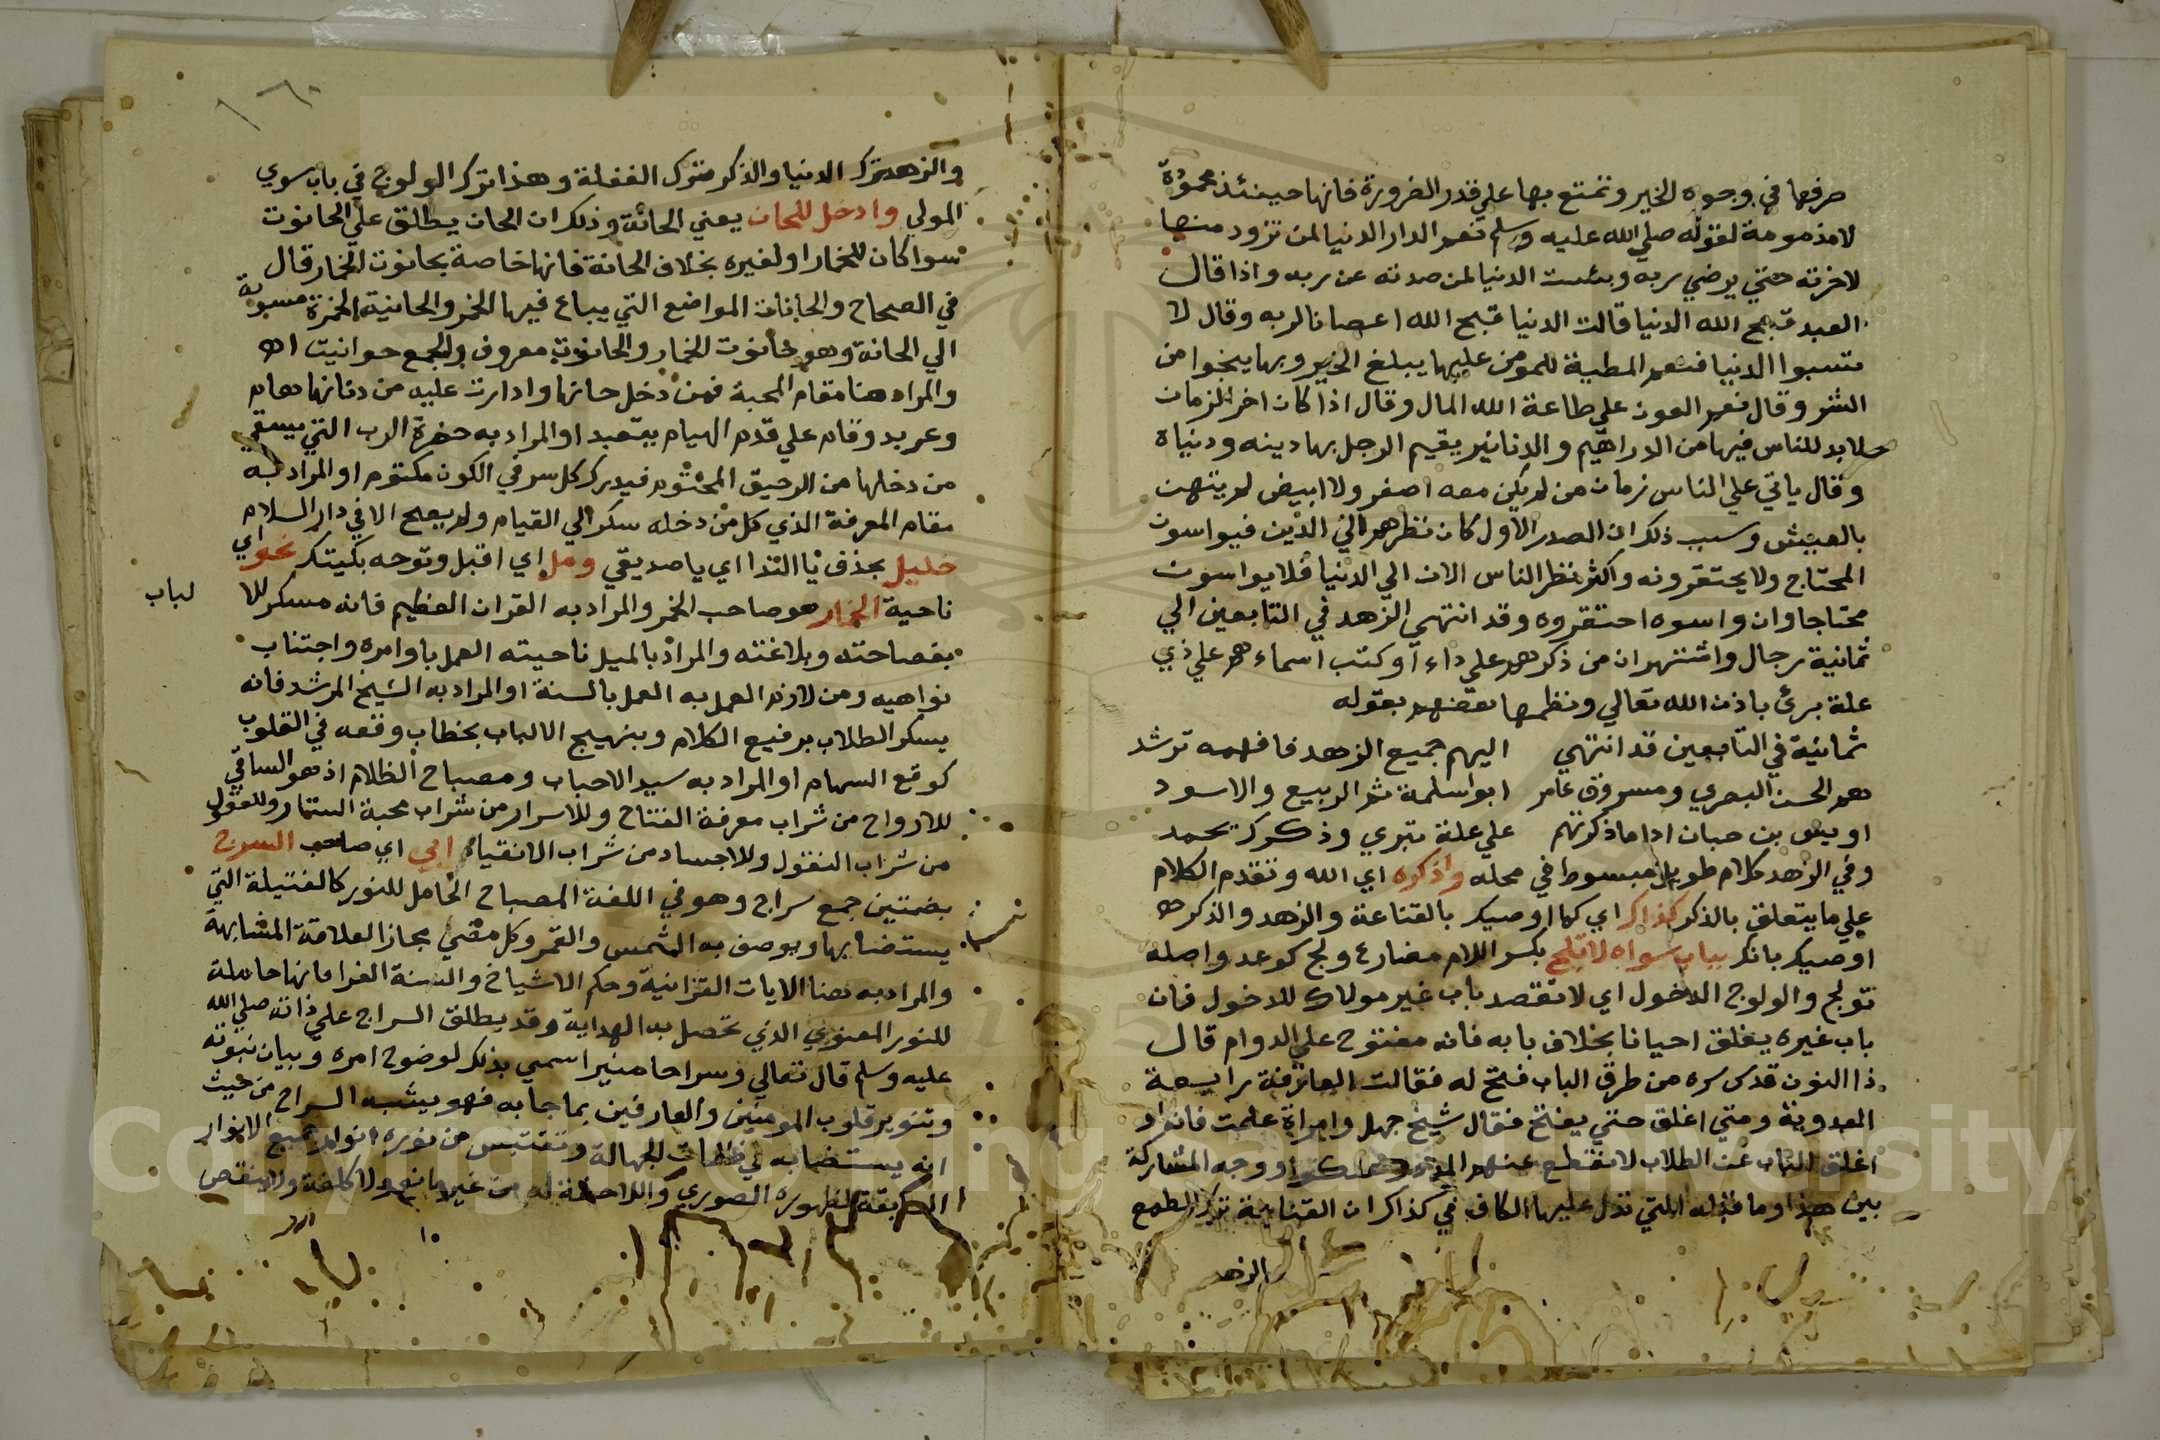 صرفها في وجوه الخير وتمتع بها علي قدر الضرورة فانها حينئذ محمودة
لا مذمومة لقوله صلي الله عليه وسلم نعم الدار الدنيا لمن تزود منها
لاخرته حتي يرضي ربه وبئست الدنيا لمن صدته عن ربه واذا قال
العبد قبح الله الدنيا قالت الدنيا قبح الله اعصانا لربه وقال لا
تسبوا الدنيا فنعم المطية للمومن عليها يبلغ الخير وبها ينجوا من
الشر وقال نعم العون علي طاعة الله المال وقال اذا كان اخر الزمان
لا بد للناس فيها من الدراهم والدنانير يقيم الرجل بها دينه ودنياه
وقال ياتي علي الناس زمان من لم يكن معه اصفر ولا ابيض لم يتهن
بالعيش وسبب ذلك ان الصدر الاول كان نظرهم الي الدين فيواسون
المحتاج ولا يحتقرونه واكثر نظر الناس الان الي الدنيا فلا يواسون
محتاجا وان واسوه احتقروه وقد انتهي الزهد في التابعين الي
ثمانية رجال واشتهر ان من ذكرهم علي داء او كتب اسماءهم علي ذي
علة برئ باذن الله تعالي ونظمها بعضهم بقوله
ثمانية في التابعين قد انتهي اليهم جميع الزهد فافهمه ترشد
هم الحسن البصري ومسروق عامر ابو اسلمة ثم الربيع والاسود
اويس بن حبان اذا ما ذكرتهم علي علة تبري وذكرك تحمد
وفي الزهد كلام طويل مبسوط في محله واذكره اي الله وتقدم الكلام
علي ما يتعلق بالذكر كذاك اي كما اوصيك بالقناعة والزهد والذكر
اوصيك بانك بباب سواه لا تلج بكسر اللام مضارع ولج كوعد واصله
تولج والولوج الدخول اي لا تقصد باب غير مولاك للدخول فان
باب غيره يغلق احيانا بخلاف بابه فانه مفتوح علي الدوام قال
ذا النون قدس سره من طرق الباب فتح له فقالت العارفة رابعة
العدوية ومتي اغلق حتي يفتح فقال شيخ جهل وامراة علمت فانه لو
اغلق الباب عن الطلاب لانقطع عنهم المدد ووجه المشاركة
بين هذا وما قبله التي تدل عليها الكاف في كذاك ان القناعة ترك الطمع
الزهد
والزهد ترك الدنيا والذكر مترك الغفلة وهذا ترك الولوج في باب سوي
المولي وادخل للحان يعني الحانة وذلك ان الحان يطلق علي الحانوت
سوا كان للخمار او لغيره بخلاف الحانة فانها خاصة بحانوت الخمار قال
في الصحاح والحانات المواضع التي يباع فيها الخمر والحانية الخمرة منسوبة
الي الحانة وهو حانوت الخمار والحانوت معروف والجمع حوانيت اه
والمراد هنا مقام المحبة فمن دخل حانها وادارت عليه من دنانها هام
وعربد وقام علي قدم الهيام يتعبد او المراد به حضرة الرب التي يسقي
من دخلها من الرحيق المختوم فيدرك كل سر في الكون مكتوم او المراد به
مقام المعرفة الذي كل من دخله سكر الي القيام ولم يصح الا في دار السلام
خليل بحذف يا الندا اي يا صديقي ومل اي اقبل وتوجه بكيتك نحو اي
ناحية الخمار هو صاحب الخمر والمراد به القران العظيم فانه مسكر للا
لباب
بفصاحته وبلاغته والمراد بالميل ناحيته العمل باوامره واجتناب
نواهيه ومن لازم العمل به العمل بالسنة او المراد به الشيخ المرشد فانه
يسكر الطلاب برفيع الكلام وينهيج الالباب بخطاب وقعه في القلوب
كوقع السهام او المراد به سيد الاحباب ومصباح الظلام اذ هو الساقي
للارواح من شراب معرفة الفتاح وللاسرار من شراب محبة الستار وللعقول
من شراب النقول وللاجساد من شراب الانقياد اخي اي صاحب السرج
بضمتين جمع سراج وهو في اللغة المصباح الحامل للنور كالفتيلة التي
يستضا بها ويوصف به الشمس والقمر وكل مضي مجازا لعلاقة المشابهة
والمراد به هنا الايات القرانية وحكم الاشياخ والسنة الغرا فانها حاملة
للنور المعنوي الذي تحصل به الهداية وقد يطلق السراج علي ذاته صلي الله
عليه وسلم قال تعالي وسراجا منيرا سمي بذلك لوضوح امره وبيان نبوته
وتنوير قلوب المومنين والعارفين بما جا به فهو يشبه السراج من حيث
انه يستضا به في ظلمات الجهالة وتقتبس من نوره انوار جميع الانوار
السابقة لظهوره الصوري واللاحقة له من غير مانع ولا كلفة ولا ينقص